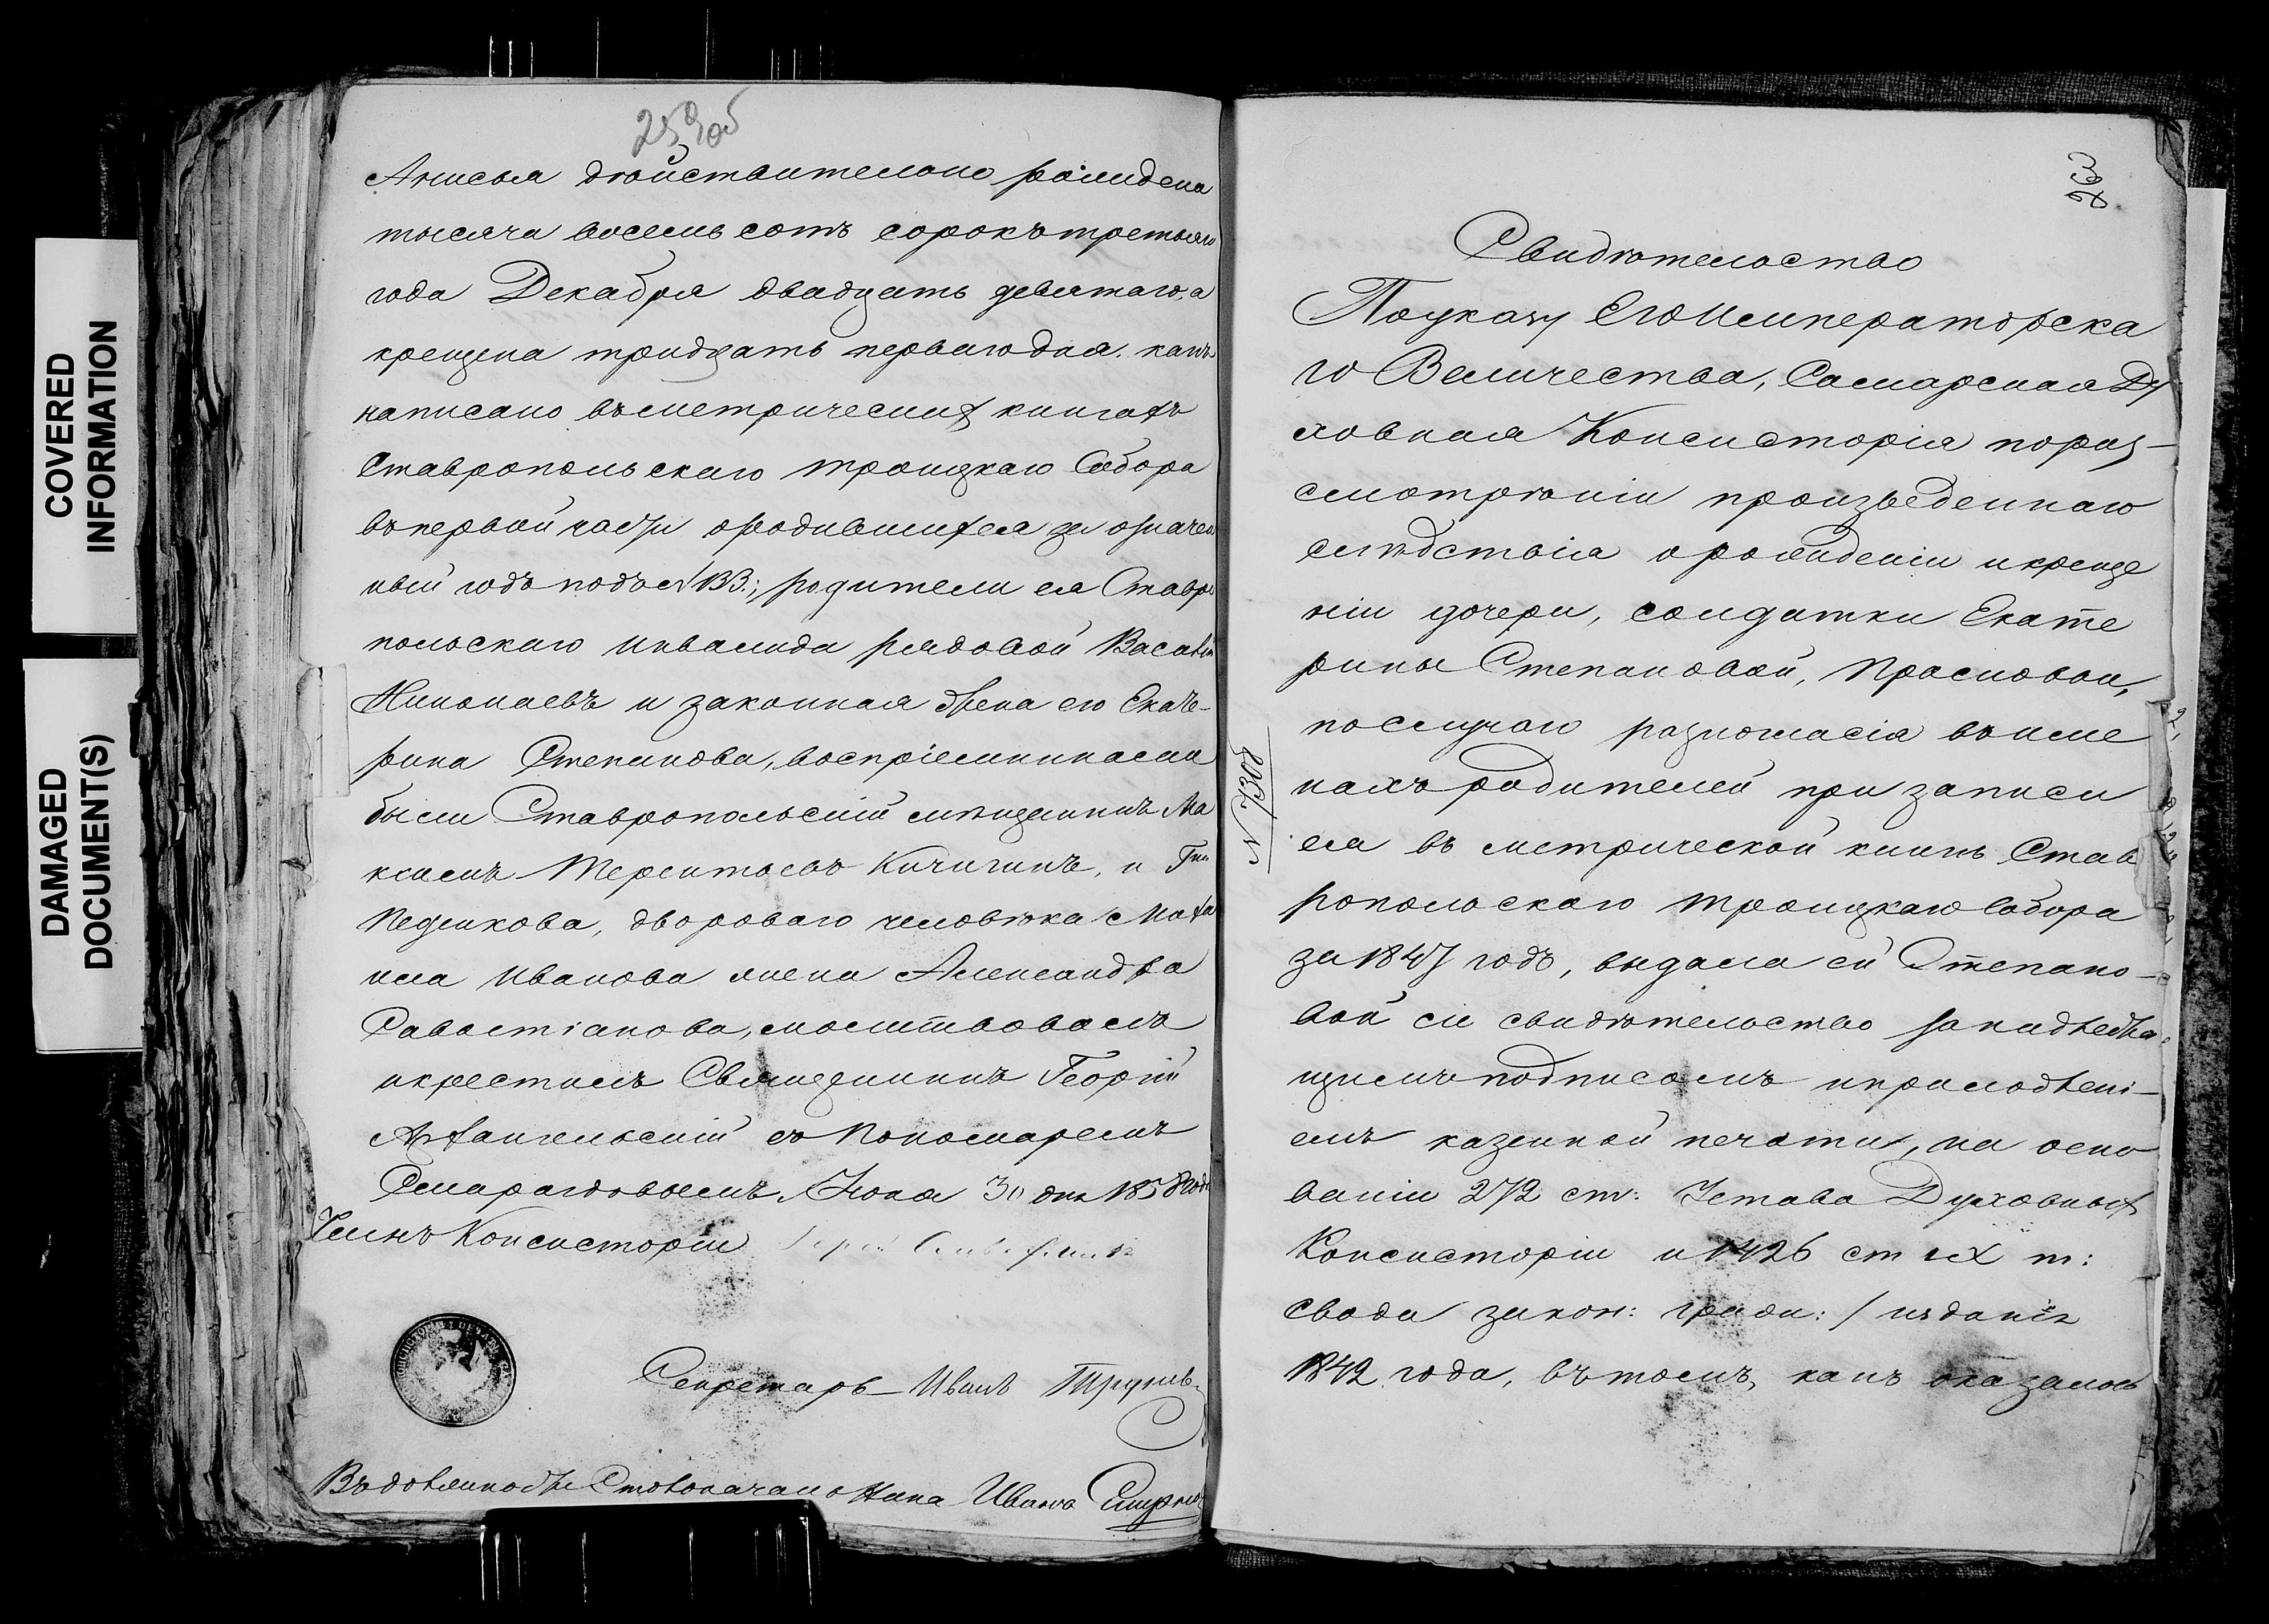 COVERED
INFORMATION
DAMAGED
DOCUMENT(S)
259об
дѣйствительно рождена
тысяча восемь сотъ сорокъ третьяго
года Декабря двадцать девятаго, а
крещена тридцать перваго дня. какъ
написано въ метрическихъ книгахъ
Ставропольскаго Троицкаго Собора
въ первой части о родившихся за означен
ный годъ подъ № 133.; родители ея Ставро
польскаго инвалида рядовой Василій
Николаевъ и законная жена его Екате-
рина Степанова, воспріемниками
были Ставропольскій мѣщанинъ Ма
ксимъ Терентьевъ Кичигинъ, и Гна
двороваго человѣка
Иванова жена Александра
Савостіанова, молитвовалъ
и крестилъ Священникъ Георгій
Архангельскій съ Пономаремъ
Смарагдовымъ. Іюня 30 дня 1858 года
Членъ Консисторіи
Секретарь Иванъ
Въ должности Столоначальника Иванъ Смирно
Свидѣтельство
По указу Его Императорска
го Величества, Самарская Ду
ховная Консисторія по раз-
смотрѣніи произведеннаго
слѣдствія о рожденіи и креще
ніи дочери, солдатки Екате
рины Степановой,
по случаю разногласія въ име
нахъ родителей при записи
ея въ метрической книгѣ Став
ропольскаго Троицкаго Собора
за 1847 годъ, выдала ей Степано-
вой сіе свидѣтельство за надлежа
щимъ подписомъ и приложені-
емъ казенной печати, на осно
ваніи 272 ст: Устава Духовныхъ
Консисторіи и 1426 ст IX т:
свода закон: гражд: / изданія
1842 года, въ томъ, какъ оказалось
N 7308